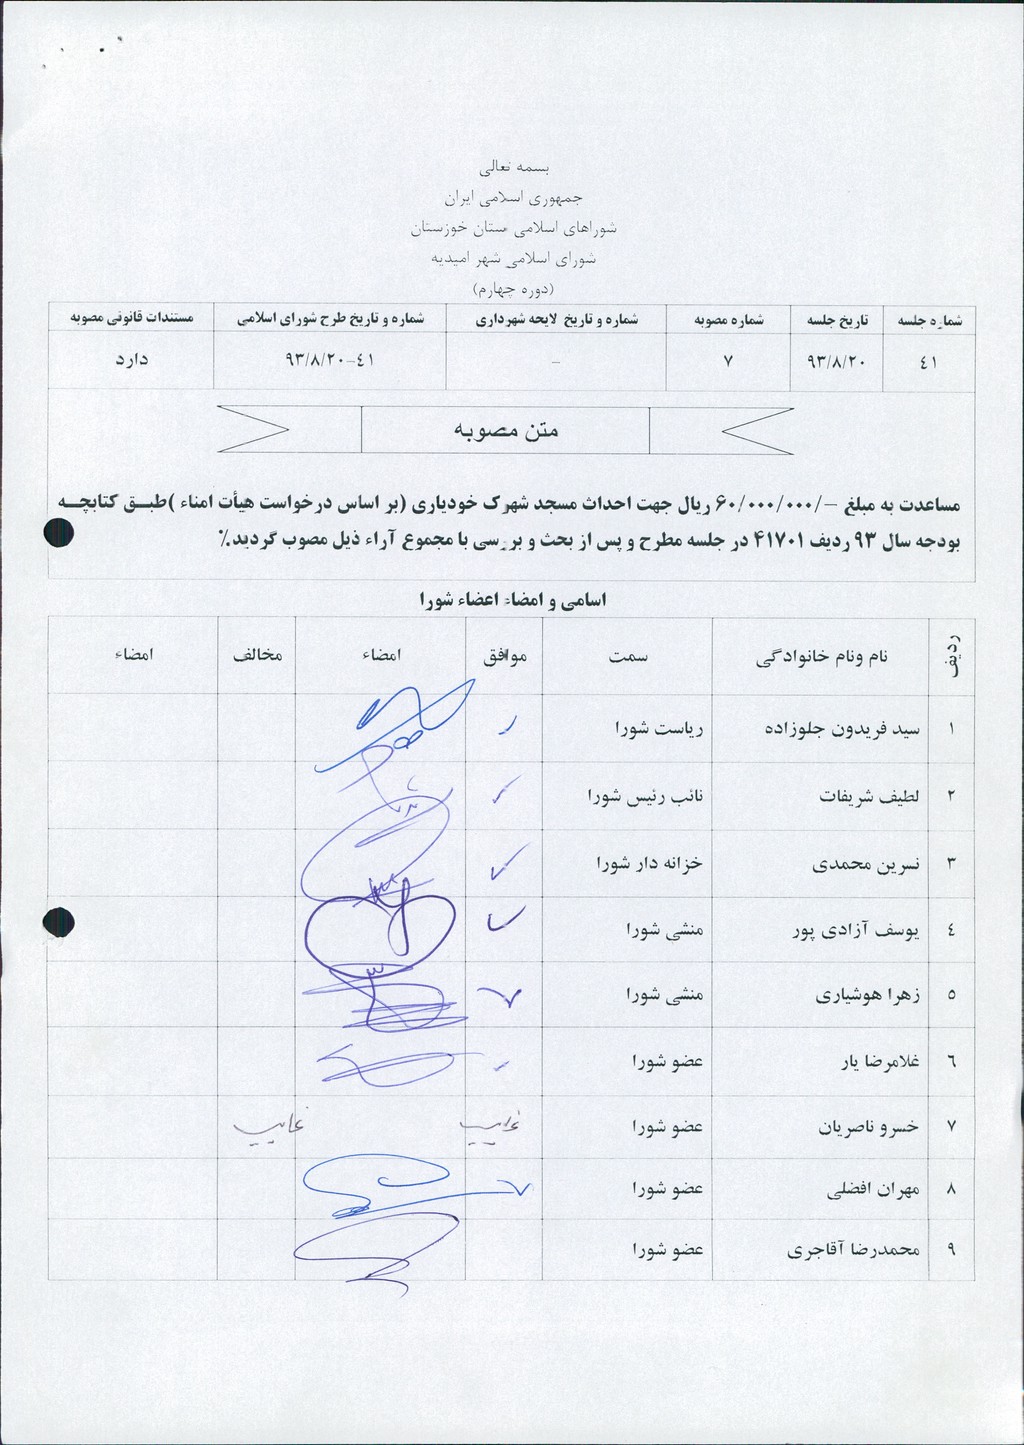 بسمه تعالی
جمهوری اسلامی ایران
شوراهای اسلامی ستان خوزستان
شورای اسلامی شهر امیدیه
(دوره چهارم)
شماره جلسه تاریخ جلسه شماره مصوبه شماره و تاریخ لایحه شهرداری شماره و تاریخ طرح شورای اسلامی مستندات قانونی مصوبه
٤١ ۹۳/۸/۲۰ ۷ - ۹۳/۸/۲۰-٤١ دارد
متن مصوبه
مساعدت به مبلغ -/۶۰/۰۰۰/۰۰۰ ریال جهت احداث مسجد شهرک خودیاری (بر اساس درخواست هیأت امناء )طبق کتابچه
بودجه سال ۹۳ ردیف ۴۱۷۰۱ در جلسه مطرح و پس از بحث و بررسی با مجموع آراء ذیل مصوب گردید.٪
اسامی و امضاء اعضاء شورا
ردیف نام ونام خانوادگی سمت موافق امضاء مخالف امضاء
۱ سید فریدون جلوزاده ریاست شورا
۲ لطیف شریفات نائب رئیس شورا
۳ نسرین محمدی خزانه دار شورا
٤ یوسف آزادی پور منشی شورا
٥ زهرا هوشیاری منشی شورا
٦ غلامرضا یار عضو شورا
۷ خسرو ناصریان عضو شورا غایب غایب
۸ مهران افضلی عضو شورا
۹ محمدرضا آقاجری عضو شورا